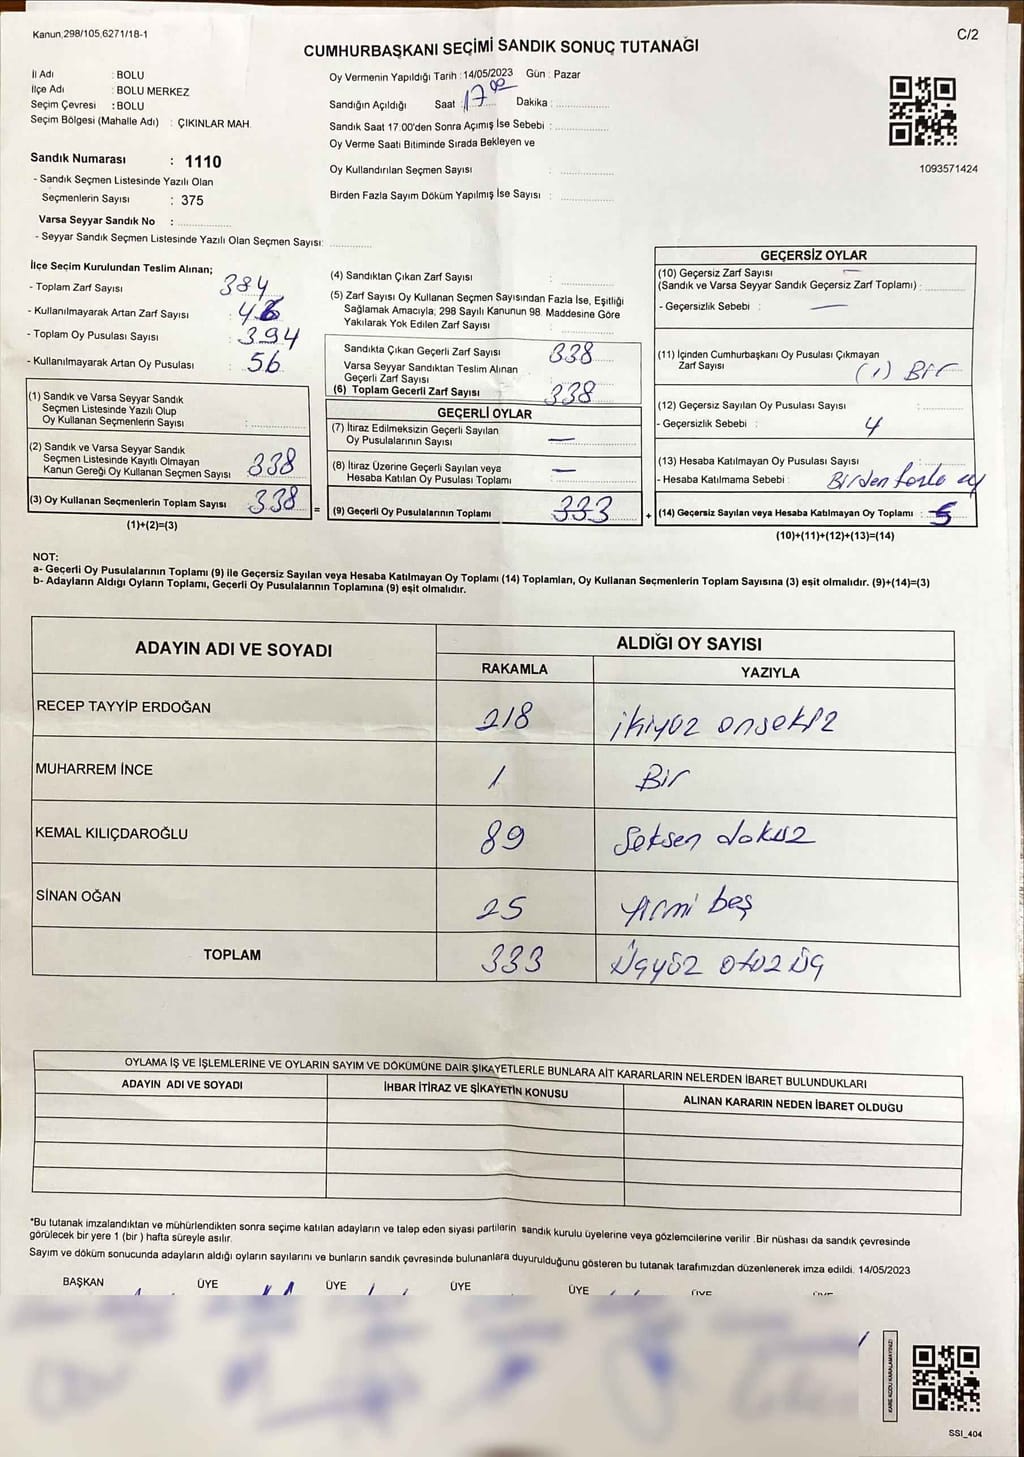 Kanun,298/105,6271/18-1
C/2
CUMHURBAŞKANI SEÇİMİ SANDIK SONUÇ TUTANAĞI
İl Adı : BOLU
İlçe Adı : BOLU MERKEZ
Seçim Çevresi : BOLU
Seçim Bölgesi (Mahalle Adı) : ÇIKINLAR MAH.
Sandık Numarası : 1110
- Sandık Seçmen Listesinde Yazılı Olan
Seçmenlerin Sayısı : 375
Varsa Seyyar Sandık No :
- Seyyar Sandık Seçmen Listesinde Yazılı Olan Seçmen Sayısı:
Oy Vermenin Yapıldığı Tarih : 14/05/2023 Gün : Pazar
Sandığın Açıldığı Saat : 17 00 Dakika :
Sandık Saat 17:00'den Sonra Açımış İse Sebebi :
Oy Verme Saati Bitiminde Sırada Bekleyen ve
Oy Kullandırılan Seçmen Sayısı :
Birden Fazla Sayım Döküm Yapılmış İse Sayısı :
1093571424
İlçe Seçim Kurulundan Teslim Alınan;
- Toplam Zarf Sayısı : 384
- Kullanılmayarak Artan Zarf Sayısı : 46
- Toplam Oy Pusulası Sayısı : 394
- Kullanılmayarak Artan Oy Pusulası : 56
(1) Sandık ve Varsa Seyyar Sandık
Seçmen Listesinde Yazılı Olup
Oy Kullanan Seçmenlerin Sayısı :
(2) Sandık ve Varsa Seyyar Sandık
Seçmen Listesinde Kayıtlı Olmayan
Kanun Gereği Oy Kullanan Seçmen Sayısı : 338
(3) Oy Kullanan Seçmenlerin Toplam Sayısı : 338 =
(1)+(2)=(3)
(4) Sandıktan Çıkan Zarf Sayısı :
(5) Zarf Sayısı Oy Kullanan Seçmen Sayısından Fazla İse, Eşitliği
Sağlamak Amacıyla; 298 Sayılı Kanunun 98. Maddesine Göre
Yakılarak Yok Edilen Zarf Sayısı :
Sandıkta Çıkan Geçerli Zarf Sayısı 338
Varsa Seyyar Sandıktan Teslim Alınan
Geçerli Zarf Sayısı :
(6) Toplam Gecerli Zarf Sayısı 338
GEÇERLİ OYLAR
(7) İtiraz Edilmeksizin Geçerli Sayılan
Oy Pusulalarının Sayısı : —
(8) İtiraz Üzerine Geçerli Sayılan veya
Hesaba Katılan Oy Pusulası Toplamı : —
(9) Geçerli Oy Pusulalarının Toplamı 333 +
GEÇERSİZ OYLAR
(10) Geçersiz Zarf Sayısı —
(Sandık ve Varsa Seyyar Sandık Geçersiz Zarf Toplamı) :
- Geçersizlik Sebebi : —
(11) İçinden Cumhurbaşkanı Oy Pusulası Çıkmayan
Zarf Sayısı (1) Bir
(12) Geçersiz Sayılan Oy Pusulası Sayısı :
- Geçersizlik Sebebi : 4
(13) Hesaba Katılmayan Oy Pusulası Sayısı :
- Hesaba Katılmama Sebebi : Birden fazla oy
(14) Geçersiz Sayılan veya Hesaba Katılmayan Oy Toplamı : 5
(10)+(11)+(12)+(13)=(14)
NOT:
a- Geçerli Oy Pusulalarının Toplamı (9) ile Geçersiz Sayılan veya Hesaba Katılmayan Oy Toplamı (14) Toplamları, Oy Kullanan Seçmenlerin Toplam Sayısına (3) eşit olmalıdır. (9)+(14)=(3)
b- Adayların Aldığı Oyların Toplamı, Geçerli Oy Pusulalarının Toplamına (9) eşit olmalıdır.
ADAYIN ADI VE SOYADI
ALDIĞI OY SAYISI
RAKAMLA YAZIYLA
RECEP TAYYİP ERDOĞAN 218 ikiyüz onsekiz
MUHARREM İNCE 1 Bir
KEMAL KILIÇDAROĞLU 89 Seksen dokuz
SİNAN OĞAN 25 yirmi beş
TOPLAM 333 Üçyüz otuz üç
OYLAMA İŞ VE İŞLEMLERİNE VE OYLARIN SAYIM VE DÖKÜMÜNE DAİR ŞİKAYETLERLE BUNLARA AİT KARARLARIN NELERDEN İBARET BULUNDUKLARI
ADAYIN ADI VE SOYADI İHBAR İTİRAZ VE ŞİKAYETİN KONUSU ALINAN KARARIN NEDEN İBARET OLDUĞU
*Bu tutanak imzalandıktan ve mühürlendikten sonra seçime katılan adayların ve talep eden siyasi partilerin sandık kurulu üyelerine veya gözlemcilerine verilir .Bir nüshası da sandık çevresinde
görülecek bir yere 1 (bir ) hafta süreyle asılır.
Sayım ve döküm sonucunda adayların aldığı oyların sayılarını ve bunların sandık çevresinde bulunanlara duyurulduğunu gösteren bu tutanak tarafımızdan düzenlenerek imza edildi. 14/05/2023
BAŞKAN ÜYE ÜYE ÜYE ÜYE ÜYE ÜYE
KARE KODU KARALAMAYINIZ!
SSI_404